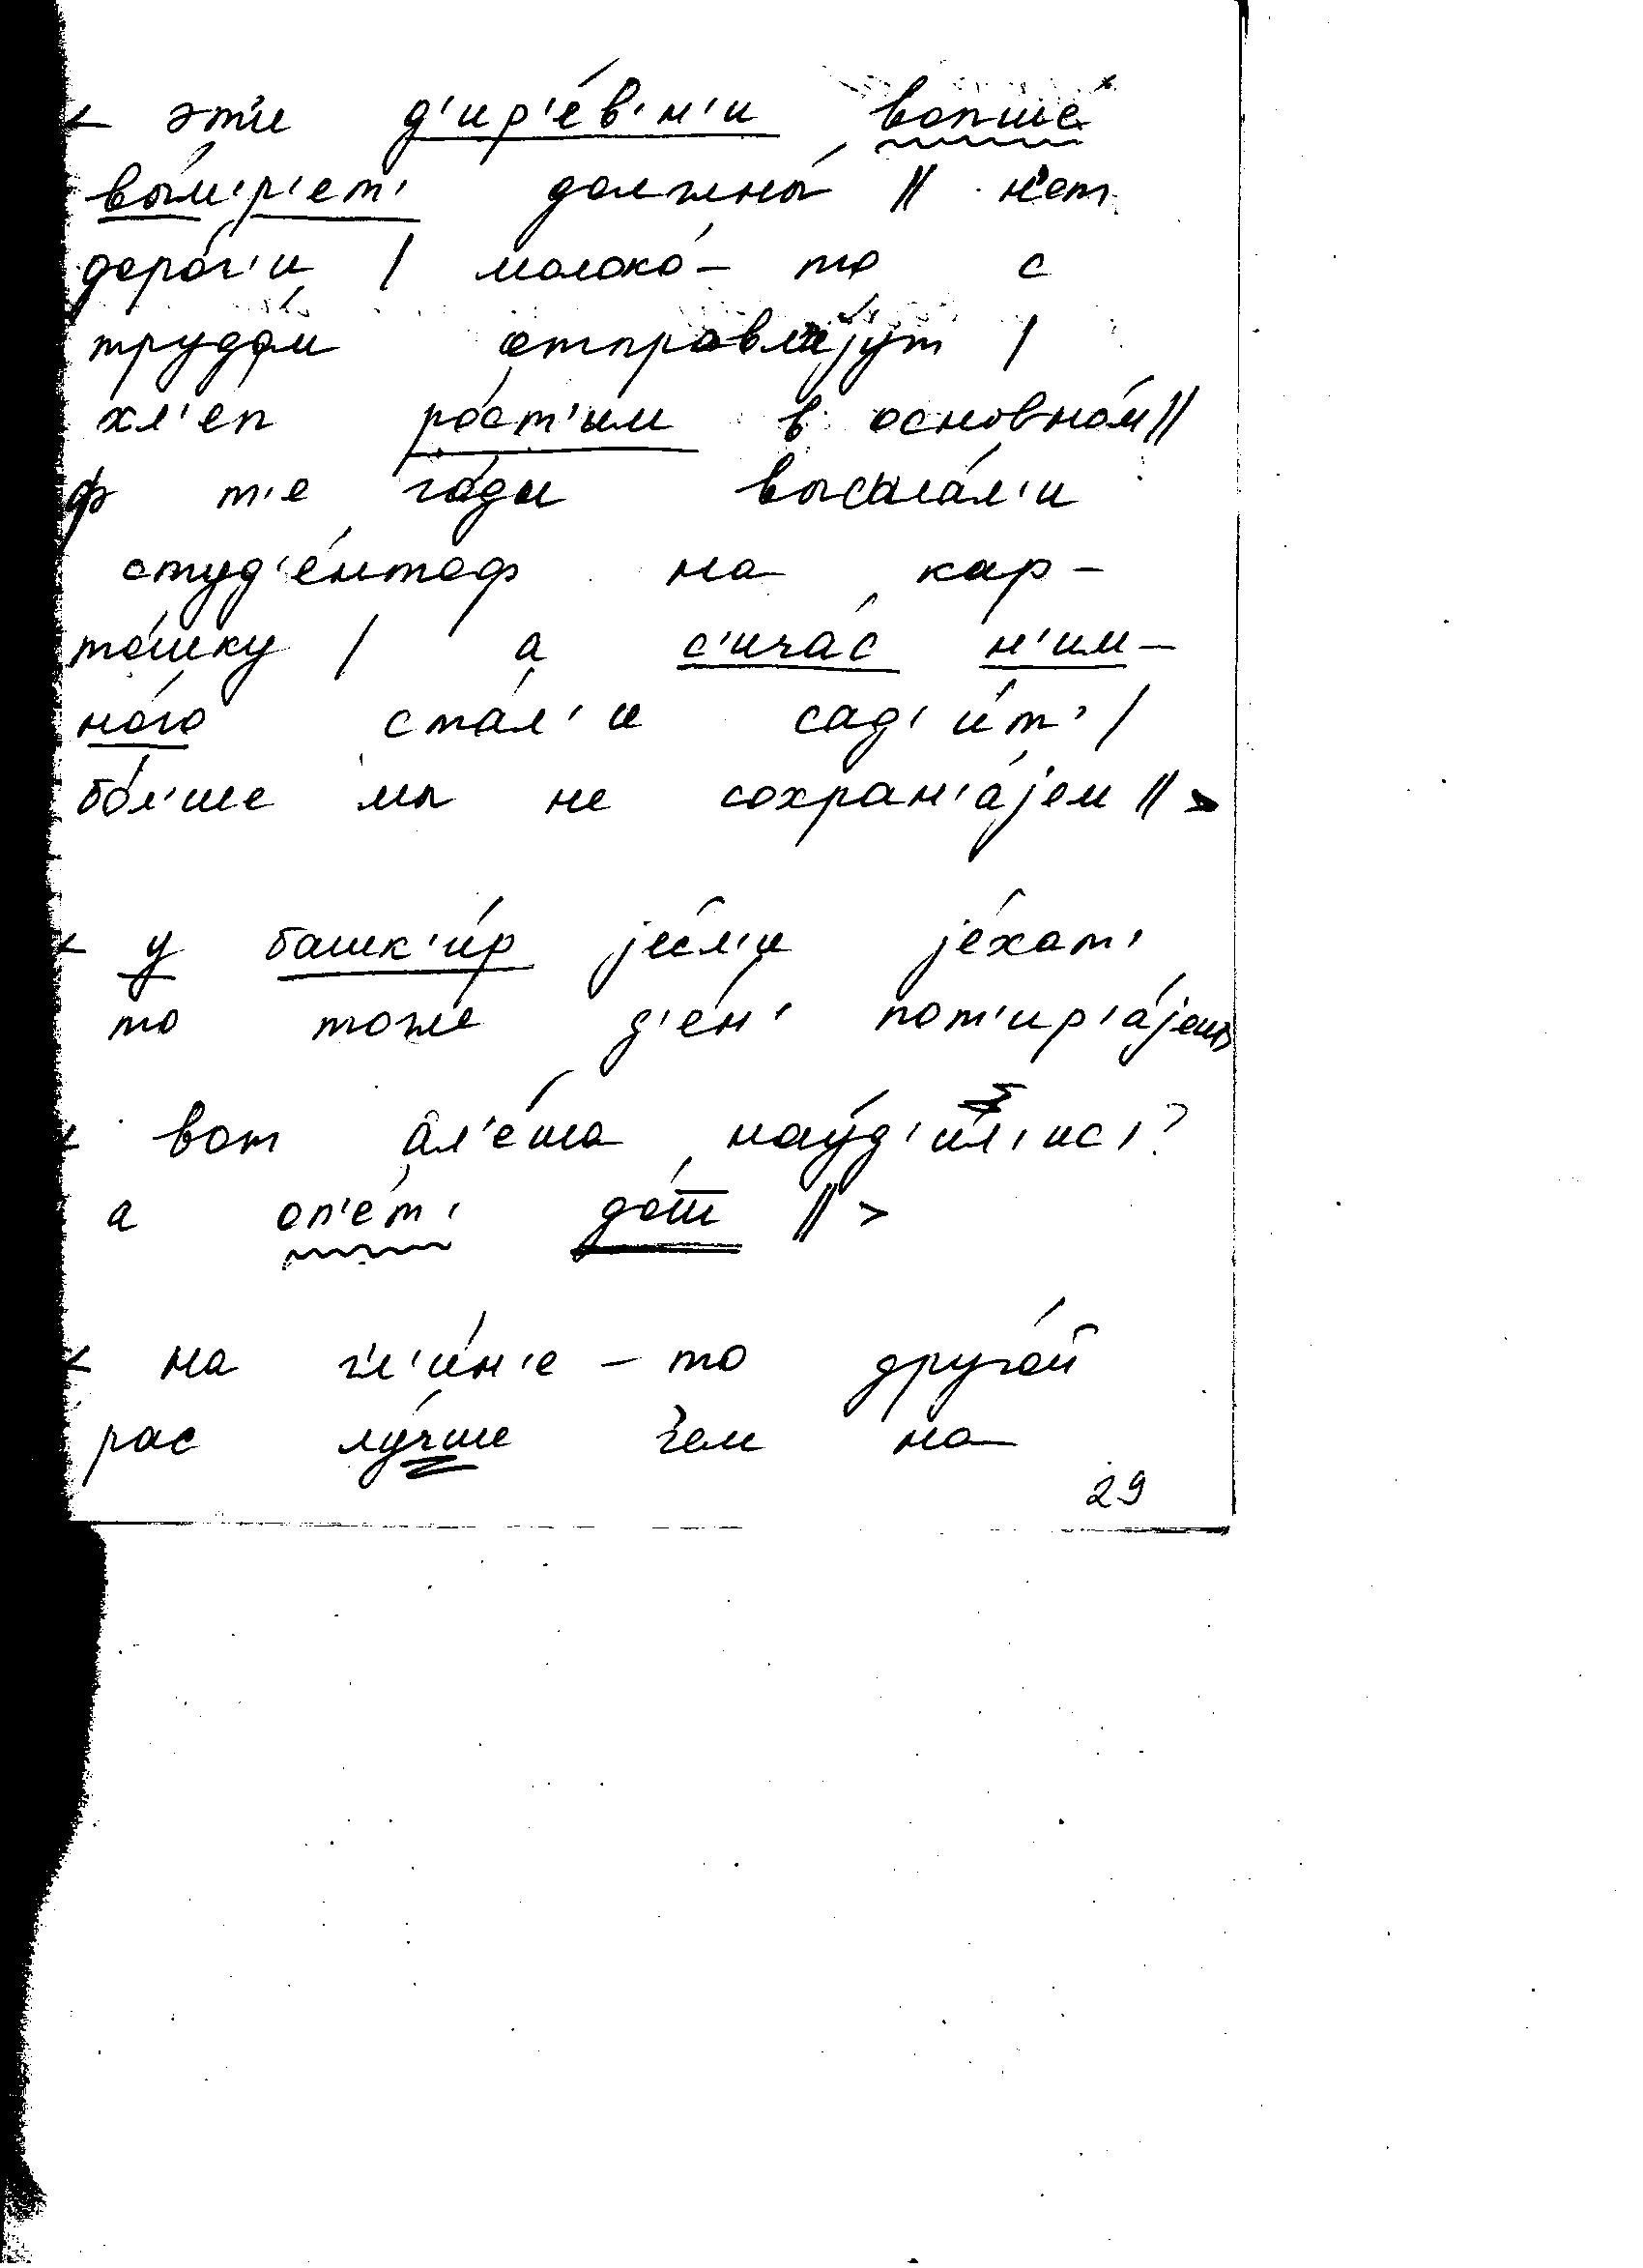 < эт'и д'ир'е́в'н'и вопше́
вы́м'р'ет' должны́ || н'ет
доро́г'и | молоко́-то с
трудо́м отправл'а́jут |
хл'еп ро́ст'им в основно́м ||
ф т'е го́ды высыла́л'и
студ'е́нтоф на кар-
то́шку | а с'ича́с н'им-
но́го ста́л'и сад'и́т' |
бо́л'ше мы не сохран'а́jем || >
< у башк'и́р jе́сл'и jе́хат'
то тоже́ д'ен' пот'ир'а́jеш>
< вот ал'е́ша нау́д'ил'ис'?
а оп'е́т' до́ш || >
< на гл'и́н'е-то друго́й
рас лу́чше чем на
29